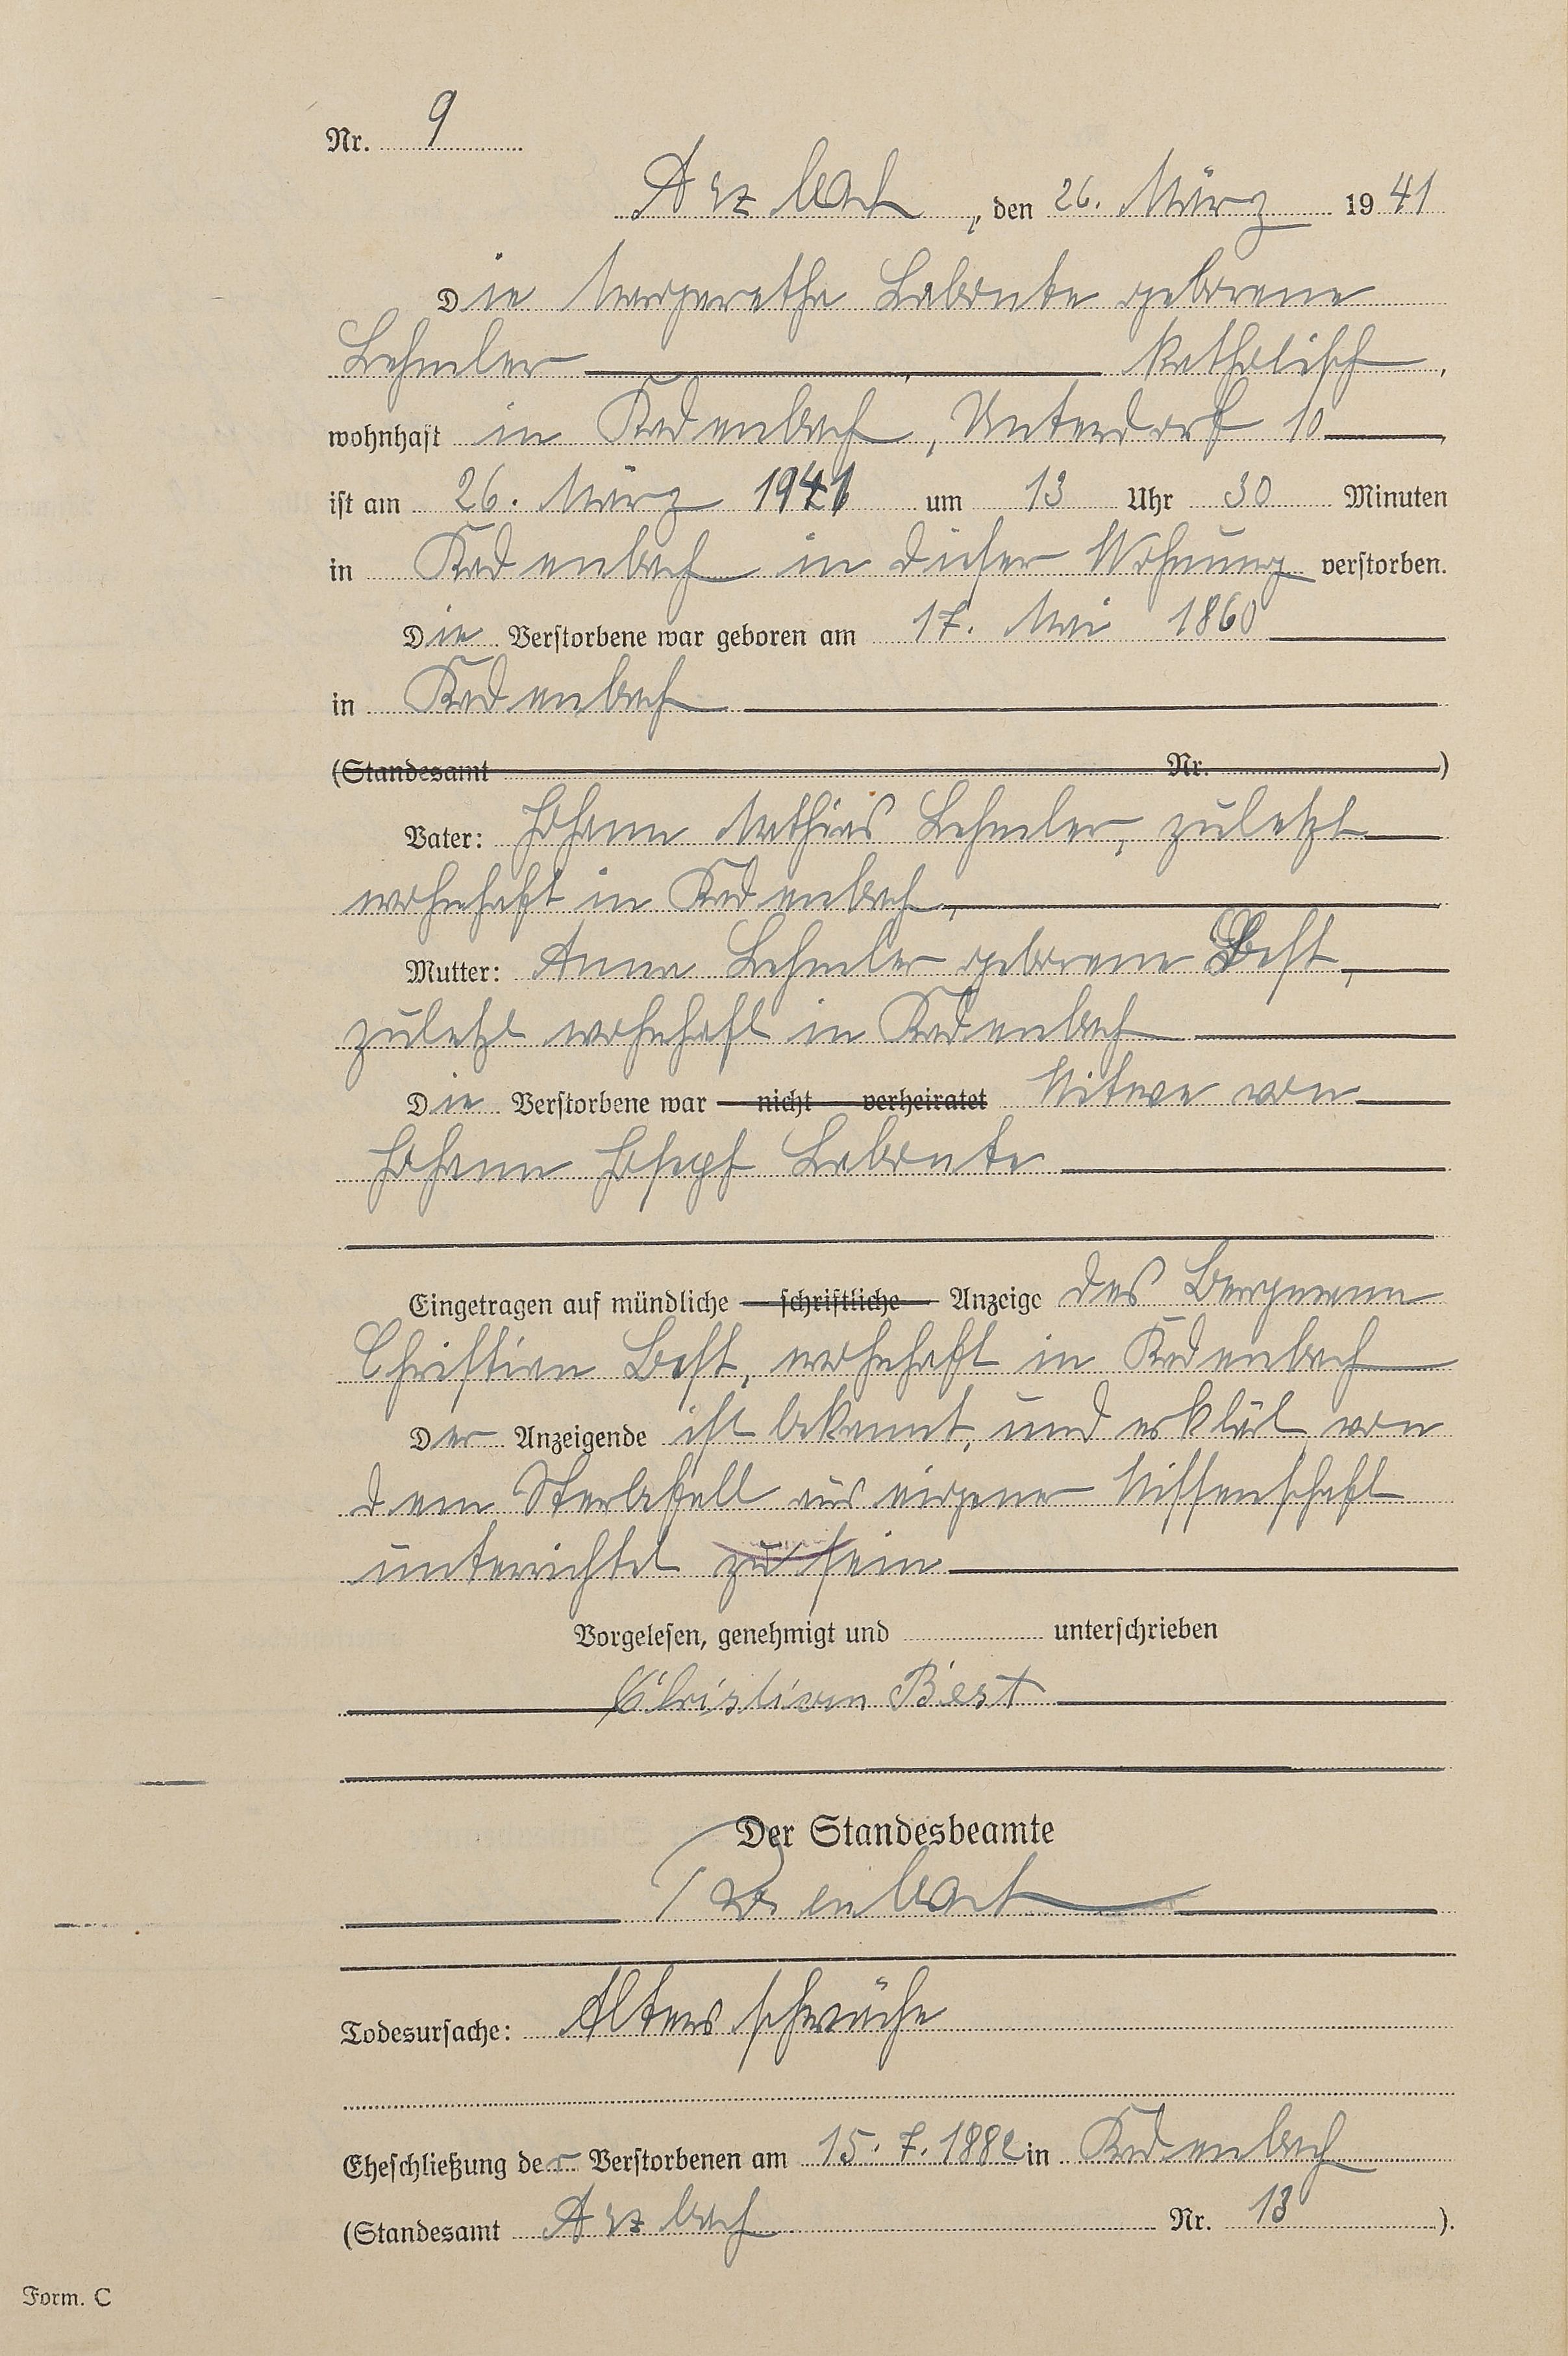 Nr. 9
Arzbach, den 26. März 1941
Die Margaretha Labonte geborene
Lehmler katholisch,
wohnhaft in Kadenbach, Unterdorf 10
ist am 26. März 1941 um 13 Uhr 30 Minuten
in Kadenbach in dieser Wohnung verstorben.
Die Verstorbene war geboren am 17. Mai 1860
in Kadenbach
(Standesamt Nr. )
Vater: Johann Mathias Lehmler, zuletzt
wohnhaft in Kadenbach,
Mutter: Anna Lehmler geborene Best,
zuletzt wohnhaft in Kadenbach
Die Verstorbene war nicht verheiratet Witwe von
Johann Josepf Labonte
Eingetragen auf mündliche schriftliche Anzeige des Bergmann
Christian Best, wohnhaft in Kadenbach
Der Anzeigende ist bekannt, und erklärt von
dem Sterbefall aus eigener Wissenschaft
unterrichtet zu sein
Vorgelesen, genehmigt und unterschrieben
Christian Best
Der Standesbeamte
Todesursache: Altersschwäche
Eheschließung der Verstorbenen am 15. 7. 1882 in Kadenbach
(Standesamt Arzbach Nr. 13 ).
Form. C